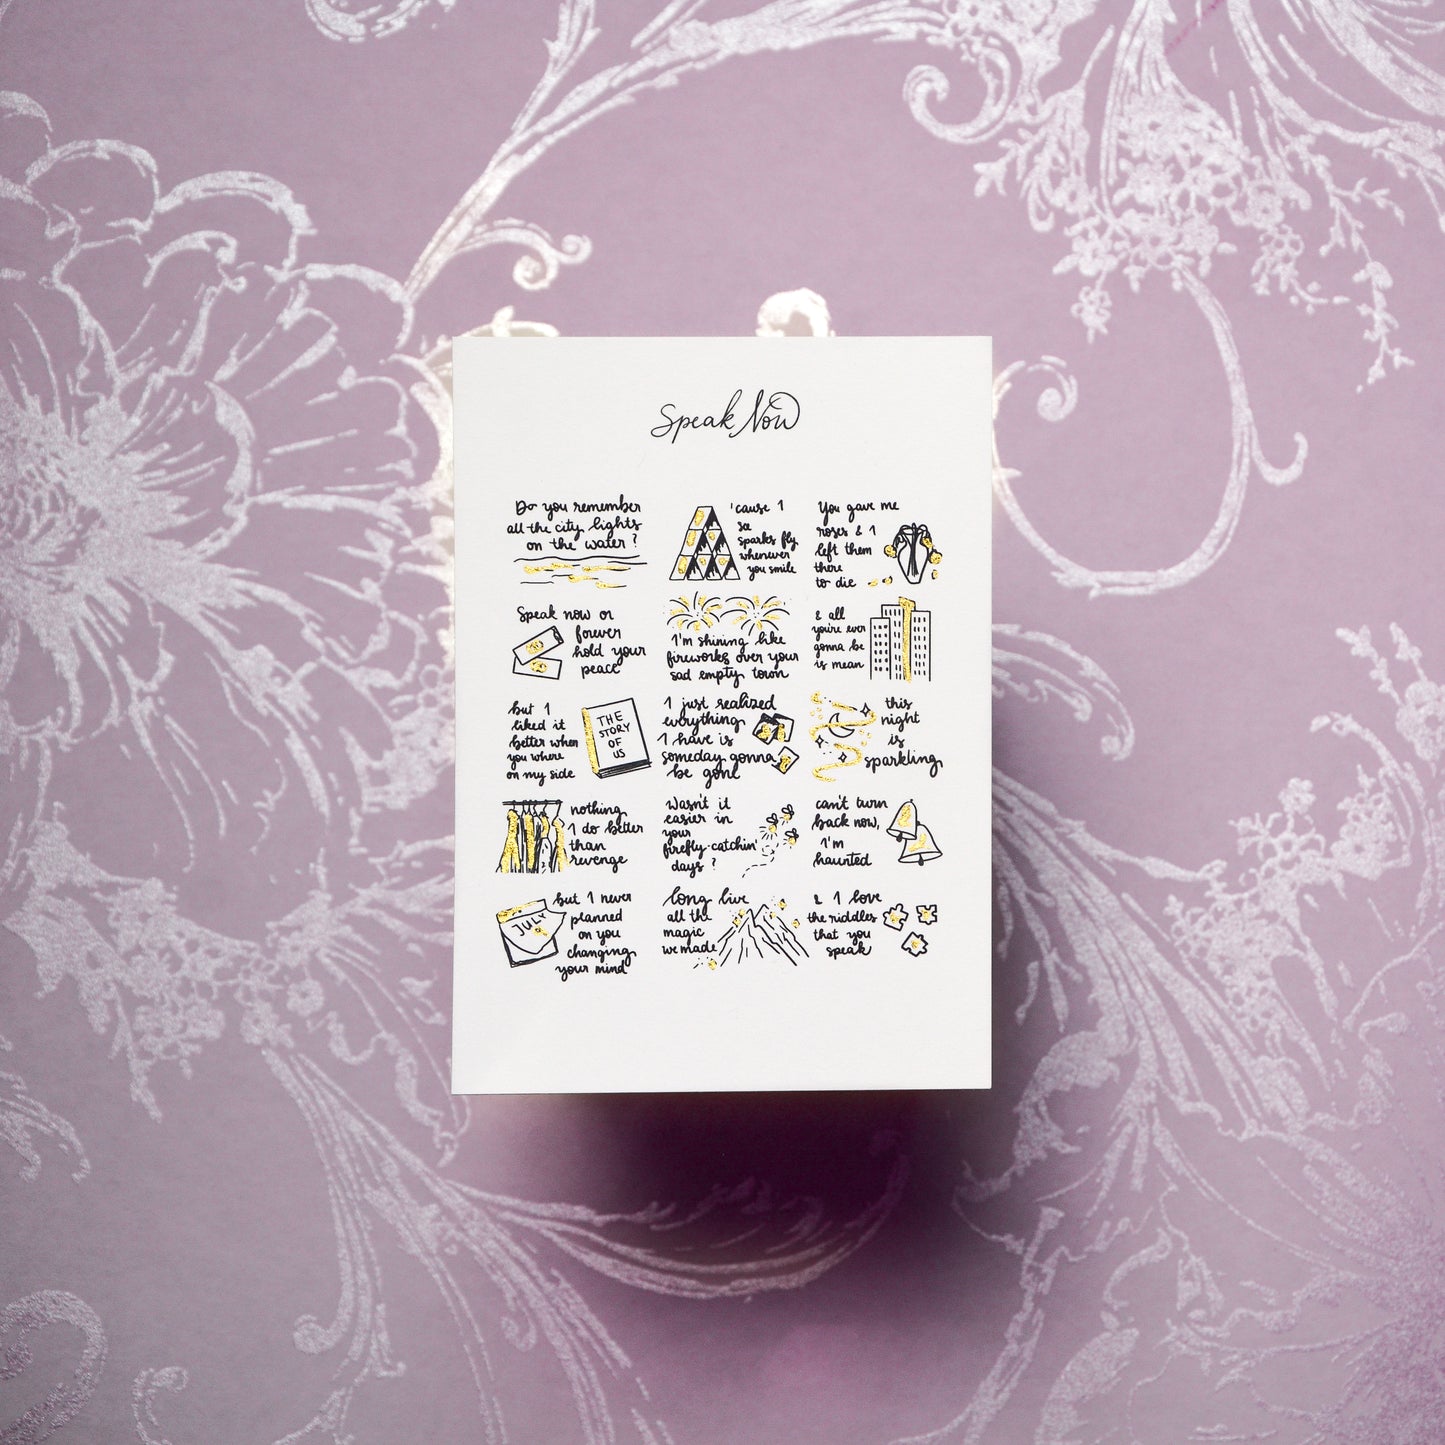 Speak Now
Do you remember
all the city lights
on the water?
'cause I
see
sparks fly
whenever
you smile
You gave me
roses & I
left them
there
to die
Speak now or
forever
hold your
peace
I'm shining like
fireworks over your
sad empty town
& all
you're ever
gonna be
is mean
but I
liked it
better when
you where
on my side
THE
STORY
OF
US
I just realized
everything
I have is
someday gonna
be gone
this
night
is
sparkling
nothing
I do better
than
revenge
Wasn't it
easier in
your
firefly-catchin'
days?
can't turn
back now,
I'm
haunted
JULY
but I never
planned
on you
changing
your mind
long live
all the
magic
we made
& I love
the riddles
that you
speak